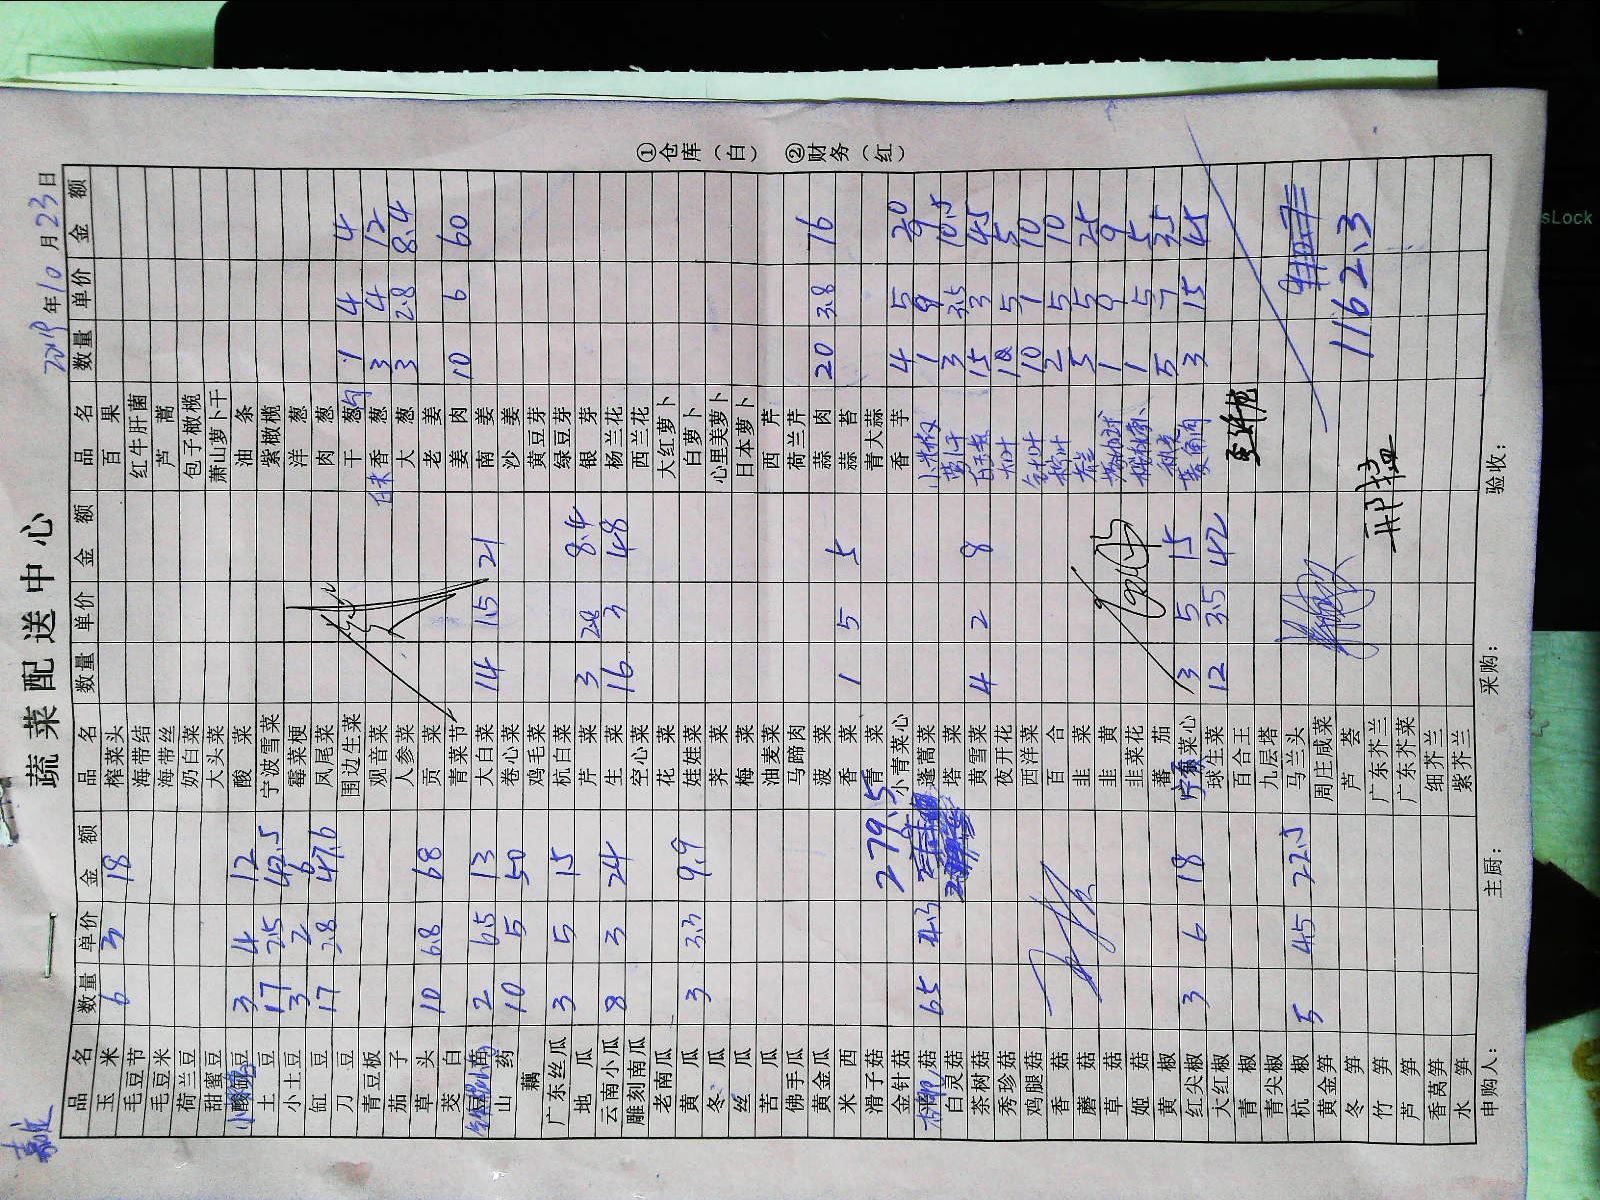 蔬菜配送中心
2019年10月23日
品名 数量 单价 金额 品名 数量 单价 金额 品名 数量 单价 金额
玉米 6 3 18 榨菜头 百果
毛豆节 海带结 红牛肝菌
毛豆米 海带丝 芦蒿
荷兰豆 奶白菜 包子橄榄
甜蜜豆 大头菜 萧山萝卜干
3 4 12 酸菜 油条
土豆 17 2.5 42.5 宁波雪菜 紫橄榄
小土豆 3 2 6 霉菜梗 洋葱
缸豆 17 2.8 47.6 凤尾菜 肉葱
刀豆 围边生菜 干葱 1 4 4
青豆板 观音菜 香葱 3 4 12
茄子 人参菜 大葱 3 2.8 8.4
草头 10 6.8 68 贡菜 老姜
茭白 青菜节 姜肉 10 6 60
2 6.5 13 大白菜 14 1.5 21 南姜
山药 10 5 50 卷心菜 沙姜
藕 鸡毛菜 黄豆芽
广东丝瓜 3 5 15 杭白菜 绿豆芽
地瓜 芹菜 3 2.8 8.4 银芽
云南小瓜 8 3 24 生菜 16 3 48 杨兰花
雕刻南瓜 空心菜 西兰花
老南瓜 花菜 大红萝卜
黄瓜 3 3.3 9.9 娃娃菜 白萝卜
冬瓜 荠菜 心里美萝卜
丝瓜 梅菜 日本萝卜
苦瓜 油麦菜 西芹
佛手瓜 马蹄肉 荷兰芹
黄金瓜 菠菜 蒜肉 20 3.8 76
米西 香菜 1 5 5 蒜苔
滑子菇 青菜 青大蒜
金针菇 279.5 小青菜心 香芋 4 5 20
菇 65 4.3 蓬蒿菜 小米椒 1 9 9
白灵菇 塔菜 3 3.5 10.5
茶树菇 黄雪菜 4 2 8 15 3 45
秀珍菇 夜开花 5 5
鸡腿菇 西洋菜 10 1 10
香菇 百合 2 5 10
蘑菇 韭菜 5 5 25
草菇 韭黄 1 9 9
姬菇 韭菜花 1 5 5
黄椒 番茄 5 7 35
红尖椒 3 6 18 菜心 3 5 15 3 15 45
大红椒 球生菜 12 3.5 42
青椒 百合王
青尖椒 九层塔
杭椒 5 4.5 22.5 马兰头
黄金笋 周庄咸菜
冬笋 芦荟 1162.3
竹笋 广东芥兰
芦笋 广东芥菜
香莴笋 细芥兰
水笋 紫芥兰
申购人： 主厨： 采购： 验收：
①仓库（白） ②财务（红）
sLock